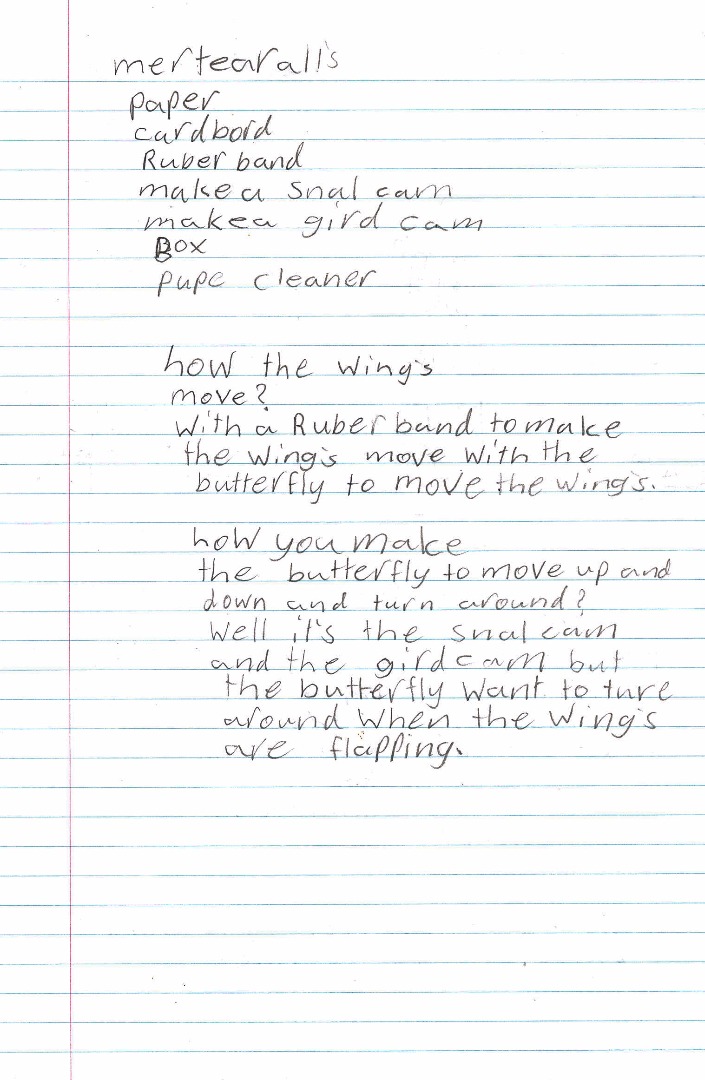 mertearall's
paper
cardbord
Ruber band
make a snal cam
make a gird cam
Box
pupe cleaner
how the wing's
move?
with a Ruber band to make
the wing's move with the
butterfly to move the wing's.
how you make
the butterfly to move up and
down and turn around?
Well it's the snal cam
and the gird cam but
the butterfly want to ture
around when the wing's
are flapping.